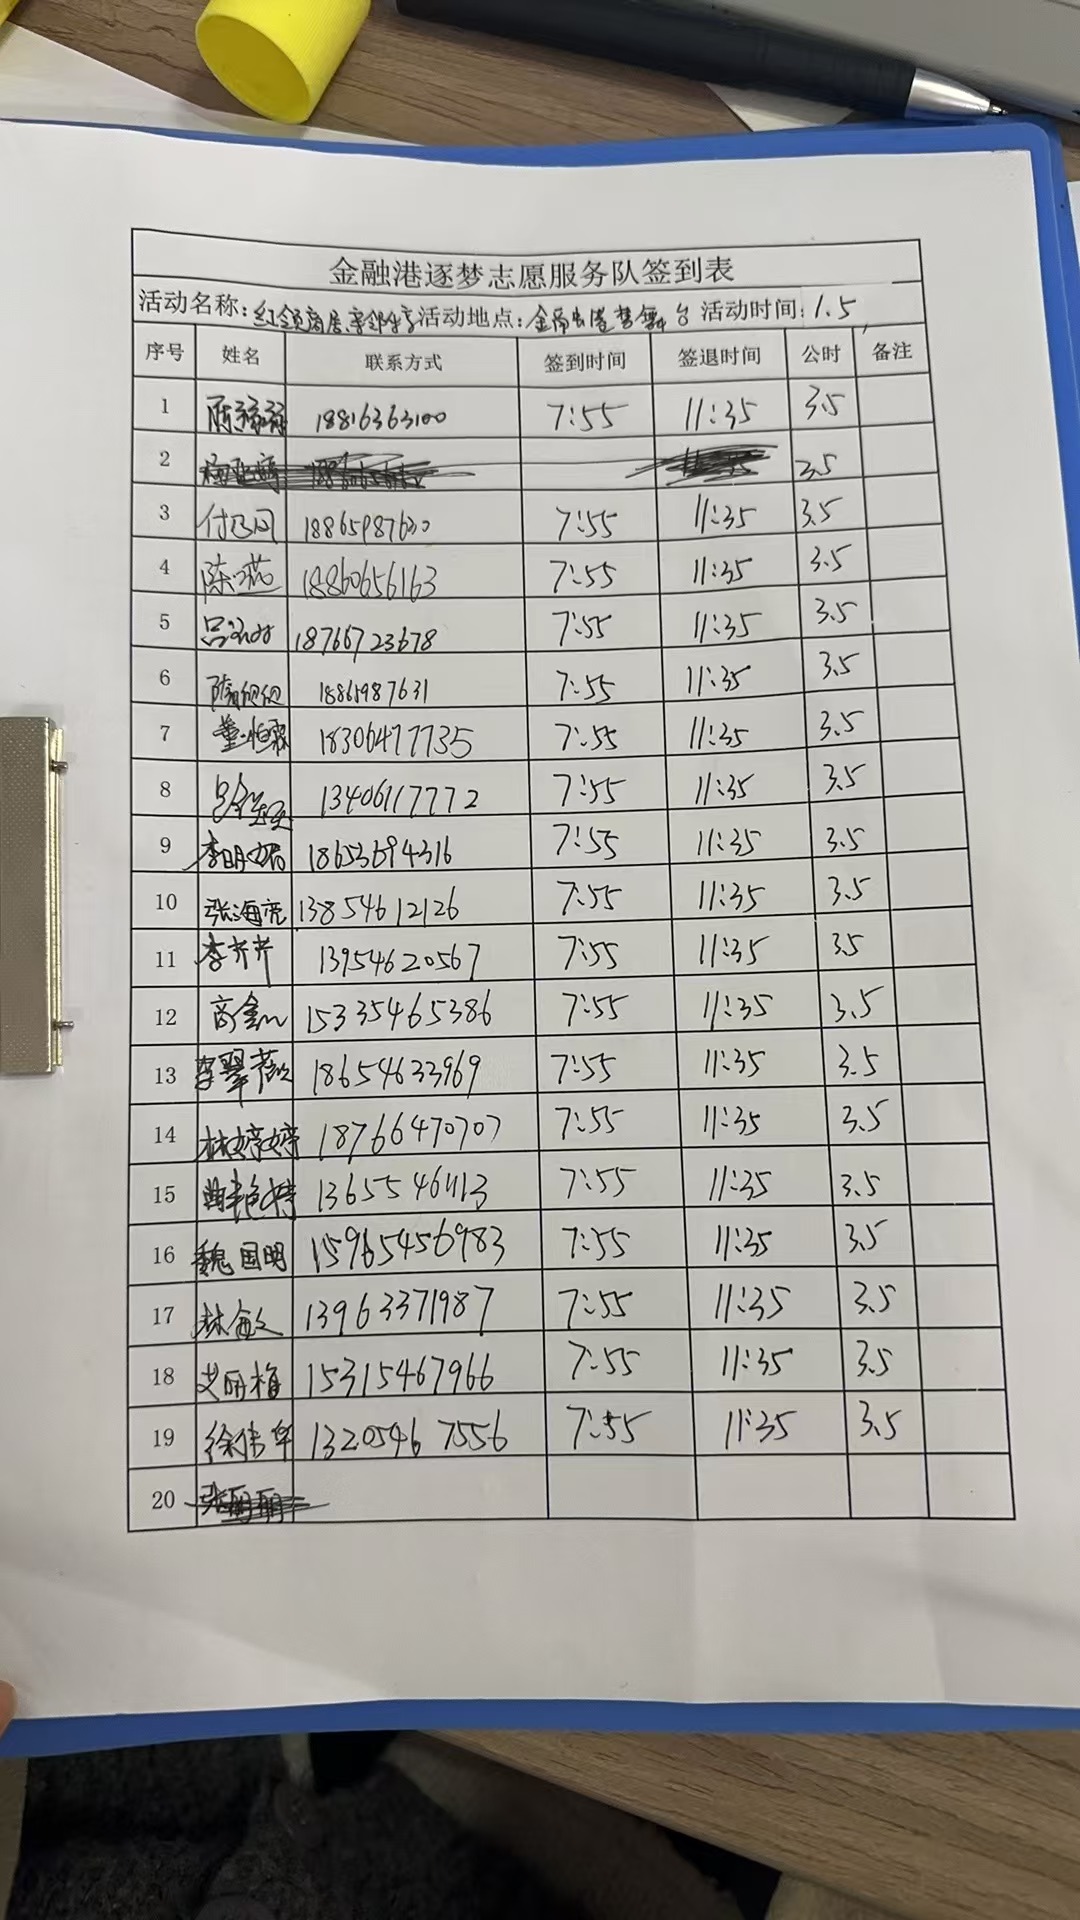 金融港逐梦志愿服务队签到表
活动名称: 活动地点: 活动时间: 1.5
序号 姓名 联系方式 签到时间 签退时间 公时 备注
1 18816363100 7:55 11:35 3.5
2 3.5
3 7:55 11:35 3.5
4 陈燕 18860656163 7:55 11:35 3.5
5 18766723678 7:55 11:35 3.5
6 18865987631 7:55 11:35 3.5
7 18306477735 7:55 11:35 3.5
8 13406117772 7:55 11:35 3.5
9 18653694316 7:55 11:35 3.5
10 张海亮 13854612126 7:55 11:35 3.5
11 李芹芹 13954620567 7:55 11:35 3.5
12 15335465386 7:55 11:35 3.5
13 李翠薇 18654633969 7:55 11:35 3.5
14 林婷婷 18766470707 7:55 11:35 3.5
15 7:55 11:35 3.5
16 魏国明 15965456983 7:55 11:35 3.5
17 林敏 13963371987 7:55 11:35 3.5
18 艾丽梅 15315467966 7:55 11:35 3.5
19 徐伟华 13205467556 7:55 11:35 3.5
20 张丽丽